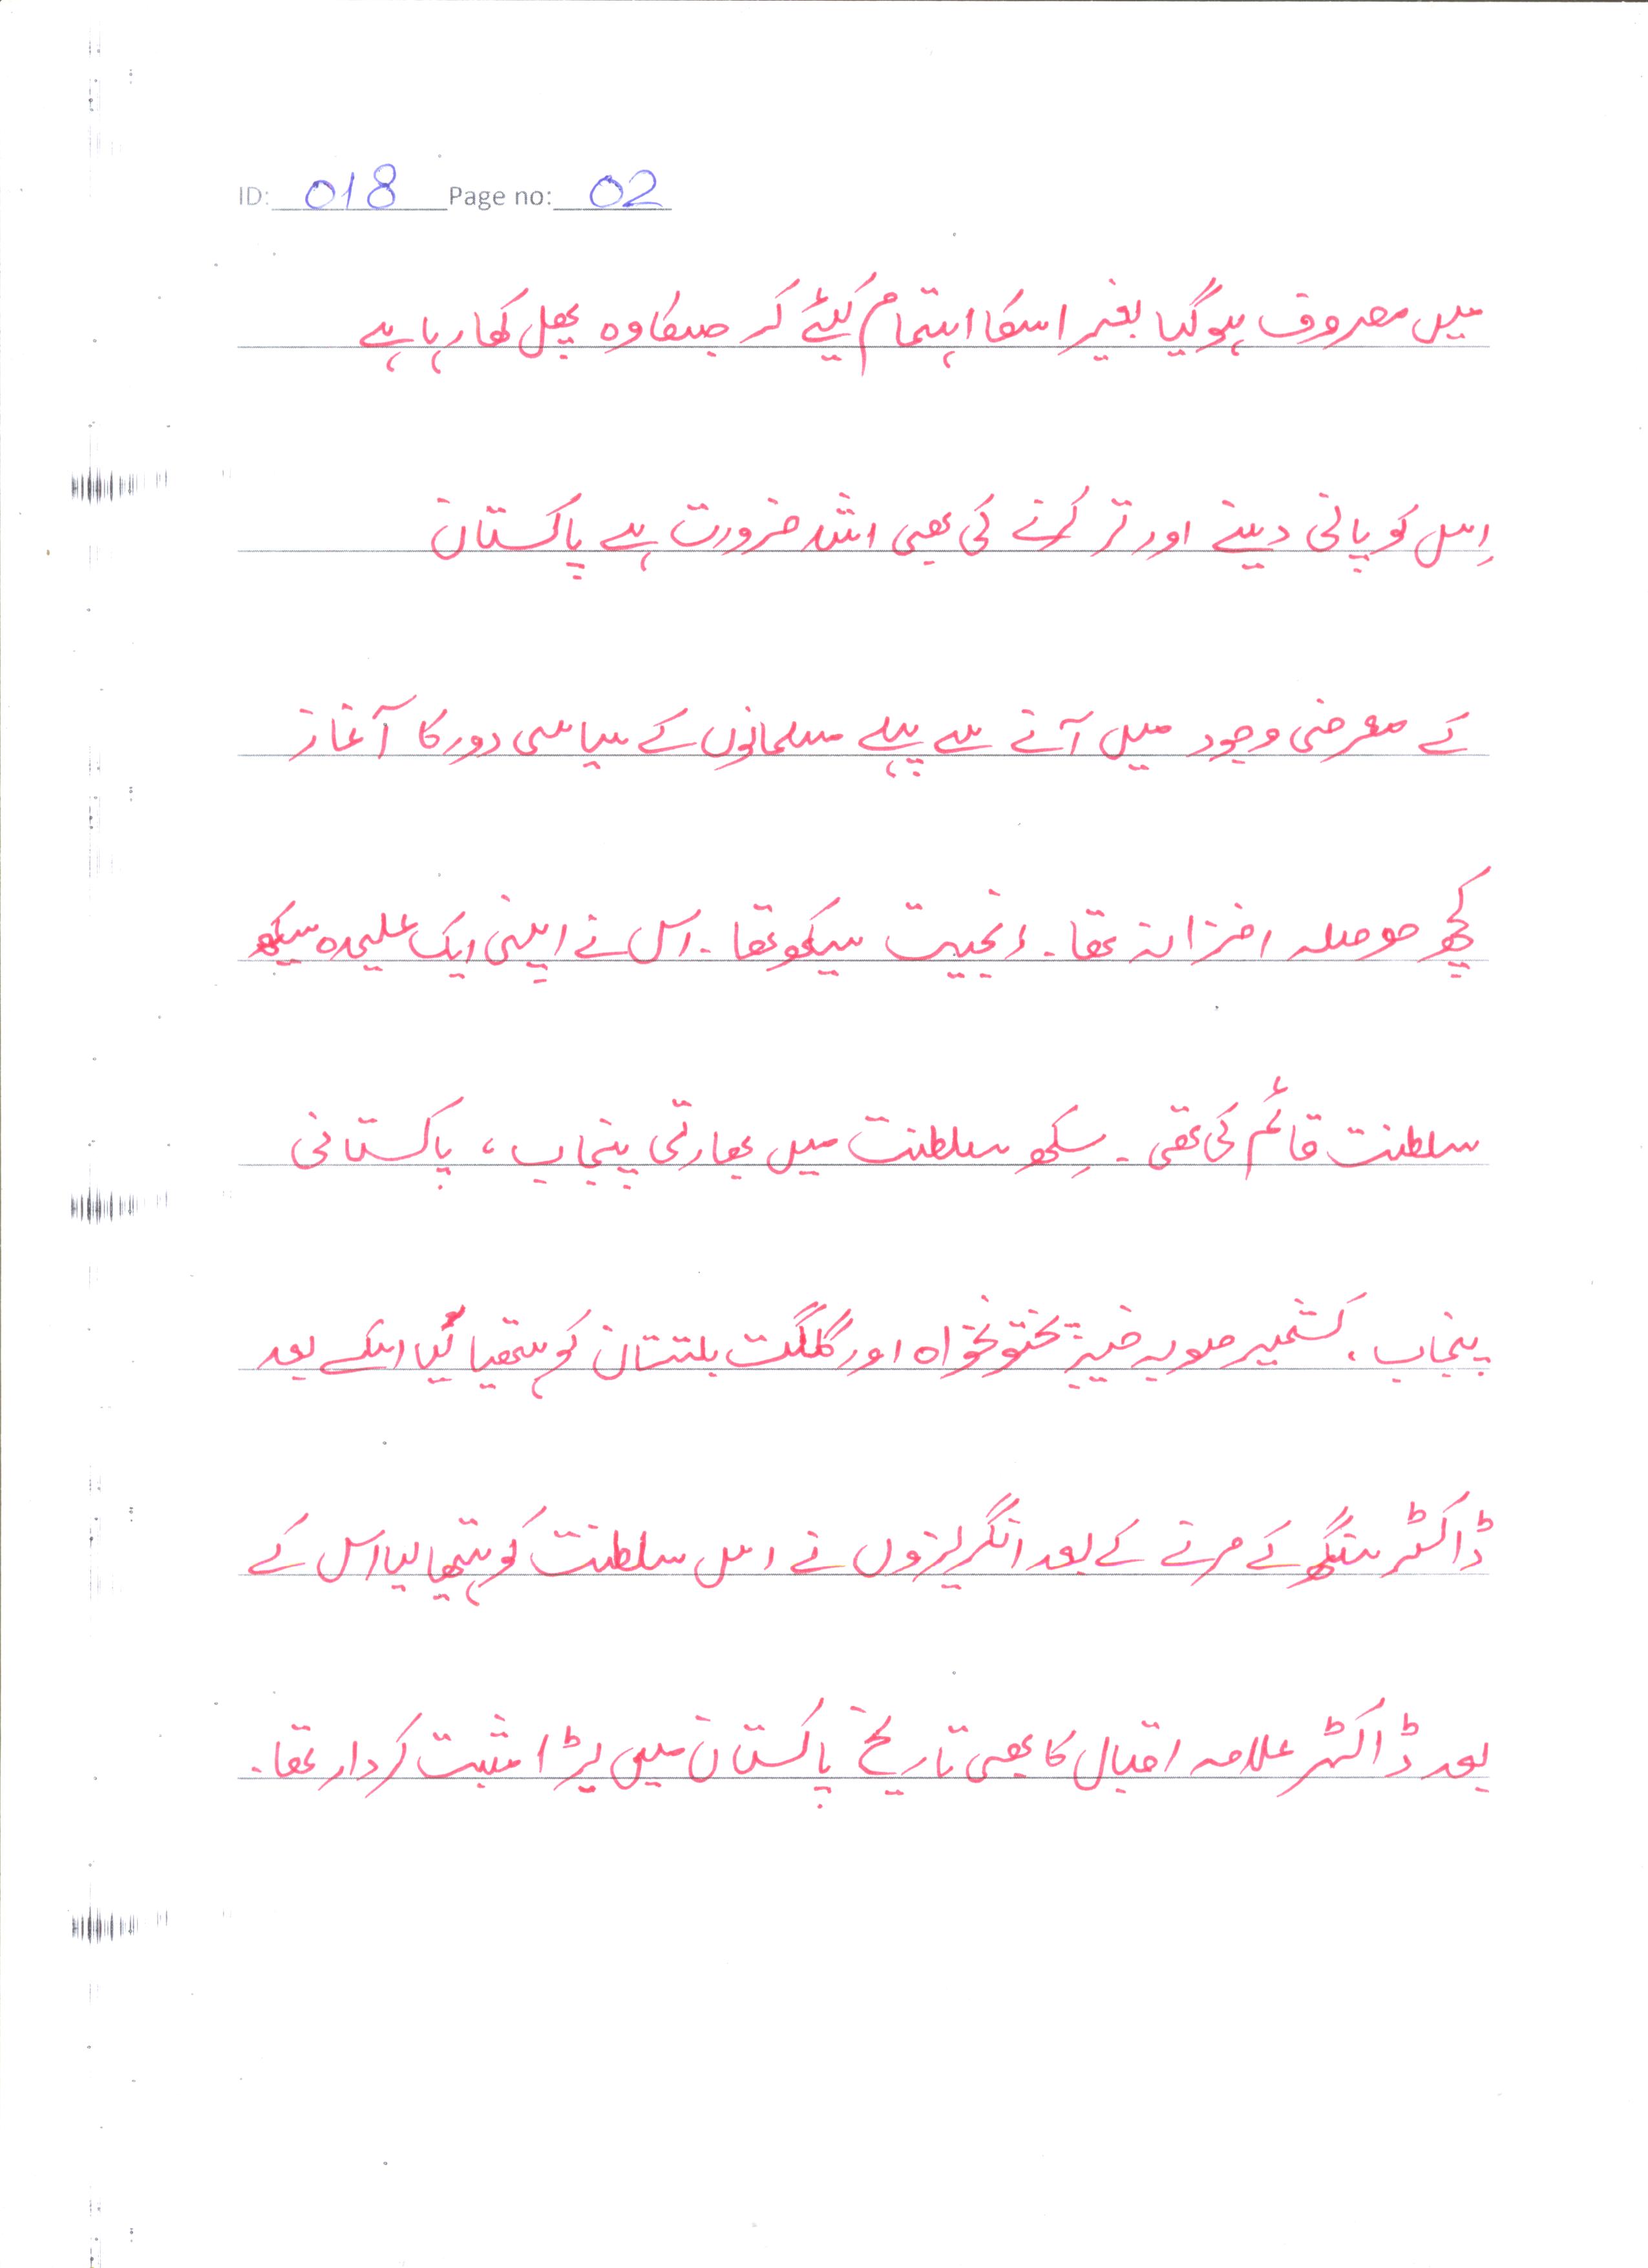 ID: 018 Page no: 02
میں مصروف ہوگیا بغیر اسکا اہتمام کیئے کر جسکا وہ پھل کھا رہا ہے
اِس کو پانی دینے اور تر کرنے کی بھی اشد ضرورت ہے پاکستان
کے معرضی وجود میں آنے سے پہلے مسلمانوں کے سیاسی دور کا آغاز
کچھ حوصلہ افزا نہ تھا۔ رنجیت سیکھ تھا۔ اس نے اپنی ایک علیحدہ سیکھ
سلطنت قائم کی تھی۔ سِکھ سلطنت میں بھارتی پنجاب، پاکستانی
پنجاب، کشمیر صوبہ خیبر پختونخواہ اور گلگت بلتستان کو ہتھیا گیا اسکے بعد
ڈاکٹر سنگھ کے مرنے کے بعد انگریزوں نے اس سلطنت کو ہتھیا لیا اس کے
بعد ڈاکٹر علامہ اقبال کا بھی تاریخ پاکستان میں بڑا مثبت کردار تھا۔